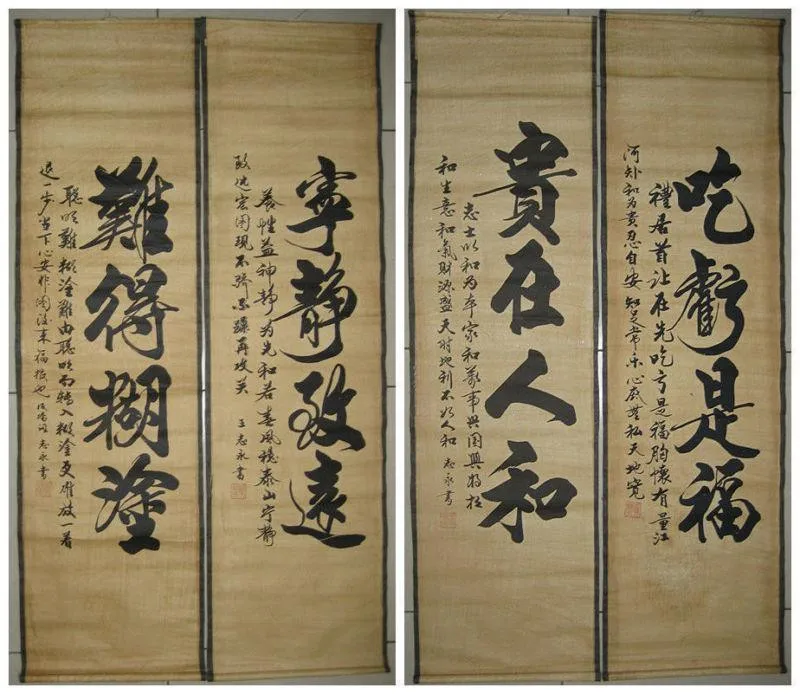 吃虧是福
禮居首让在先吃亏是福胸懷有量江
河和为贵忍自安知足常乐心底無私天地寬
貴在人和
志士以和为本家和萬事兴国興将相
和生意和氣財源盛天时地利不如人和 志永書
寧靜致遠
养性益神静为先和若春風穩泰山宁静
致远宏图现不骄不躁再攻关 王志永書
難得糊塗
聪明難糊塗難由聪明而轉入糊塗更难放一着
退一步当下心安非图後来福报也 志永書